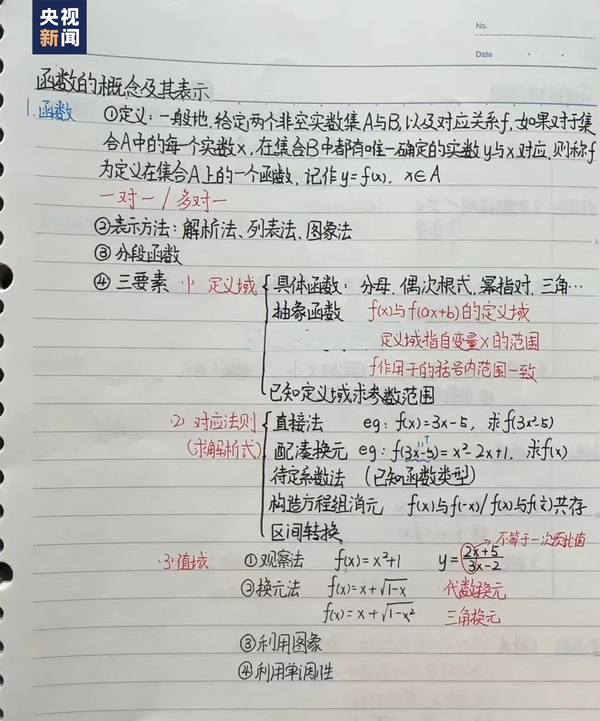 央视
新闻
No.
Date
函数的概念及其表示
1.函数 ①定义：一般地，给定两个非空实数集A与B，以及对应关系f，如果对于集
合A中的每个实数x，在集合B中都有唯一确定的实数y与x对应，则称f
为定义在集合A上的一个函数，记作y=f(x)，x∈A
一对一/多对一
②表示方法：解析法、列表法、图象法
③分段函数
④三要素 (1) 定义域 具体函数：分母，偶次根式，幂指对，三角…
抽象函数 f(x)与f(ax+b)的定义域
定义域指自变量x的范围
f作用于的括号内范围一致
已知定义域求参数范围
(2) 对应法则 直接法 eg: f(x)=3x-5，求f(3x²-5)
(求解析式) 配凑换元 eg: f(3x-5)=x²-2x+1，求f(x)
待定系数法 (已知函数类型)
构造方程组消元 f(x)与f(-x)/f(x)与f(1/x)共存
区间转换
(3)值域 ①观察法 f(x)=x²+1 y=(2x+5)/(3x-2) 不等于一次项比值
②换元法 f(x)=x+√(1-x) 代数换元
f(x)=x+√(1-x²) 三角换元
③利用图象
④利用单调性